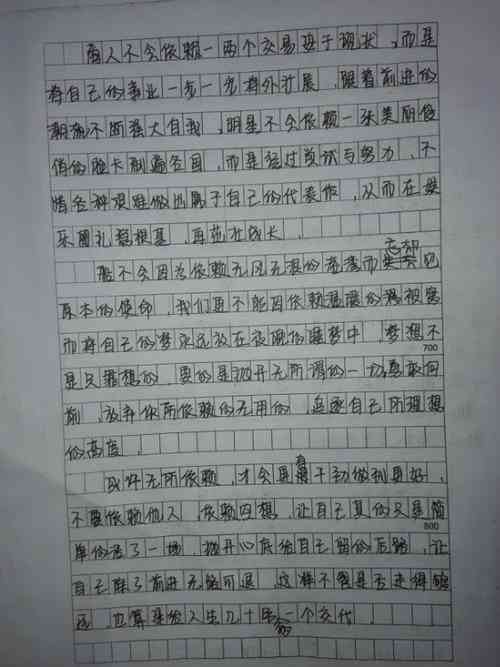 商人不会依赖一两个交易安于现状，而是
将自己的事业一步一步将外扩展，跟着前进的
潮流不断强大自我，明星不会依赖一张美丽俊
俏的脸卡刷遍各国，而是经过尝试与努力，不
惜各种艰难做出属于自己的代表作，从而在娱
乐圈扎稳根基，再茁壮成长。
船不会因为依赖无风无浪的港湾而忘却
原本的使命，我们更不能因依赖温暖的棉被窝
而将自己的梦永远放在夜晚的睡梦中，梦想不
是只靠想的，要的是抛开无所谓的一切，勇敢向
前，放弃你所依赖的无用的，追逐自己所理想
700
的高度。
或许无所依赖，才会是有干劲做到更好，
不要依赖他人，依赖回想，让自己真的只是简
800
单的活了一场，抛开心底给自己留的后路，让
自己除了前进无路可退，这样不管是否走得够
远，也算是给人生几十年一个交代